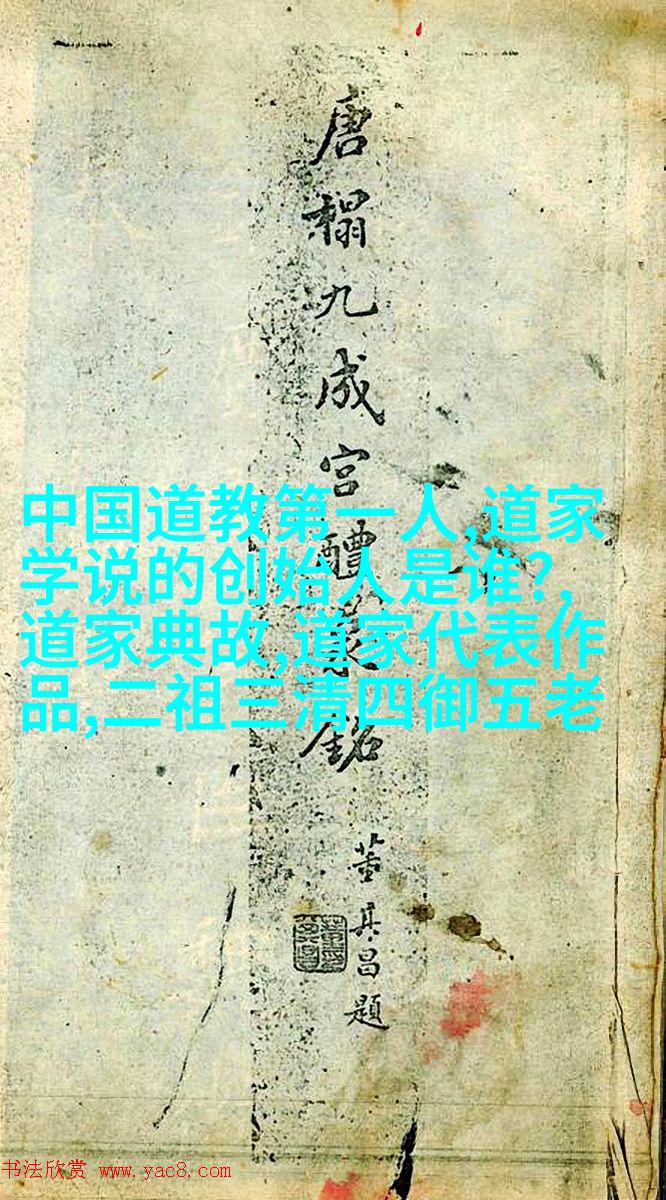 唐榻九成宮醴泉銘
董其昌題
中国道教第一人,道家
学说的创始人是谁?,
道家典故,道家代表作
品,二祖三清四御五老
书法欣赏 www.yac8.com